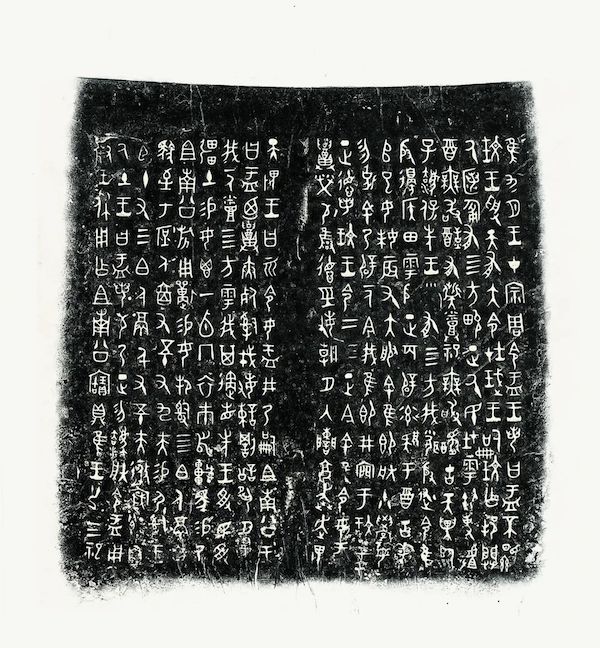 隹九月王才宗周令盂王若曰盂不顯
玟王受天有大令在珷王嗣玟乍邦闢
氒匿匍有四方畯正氒民在雩御事䖒
酉無敢酖有祡蒸祀無敢醻古天異臨
子灋保先王有四方我聞殷述令隹
殷邊侯田雩殷正百辟率肄于酉古喪
𠂤巳女妹辰有大服余隹即朕小學女
勿克余乃辟一人今我隹即井廩于玟王
正德若玟王令二三正今余隹令女盂
召榮敬雝德巠敏朝夕入讕享奔走畏
天畏王曰而令女盂井乃嗣且南公王
曰盂乃召夾死司戎敏諫罰訟夙夕召
我一人烝四方雩我其遹省先王受民受
彊土易女鬯一卣冂衣巿舄車馬易乃
且南公旂用狩易女邦司四白人鬲自
馭至于庶人六百又五十又九夫易尸司王
臣十又三白人鬲千又五十夫遷自
氒土王曰盂若敬乃正勿灋朕令盂用
對王休用乍且南公寶鼎隹王廿又三祀